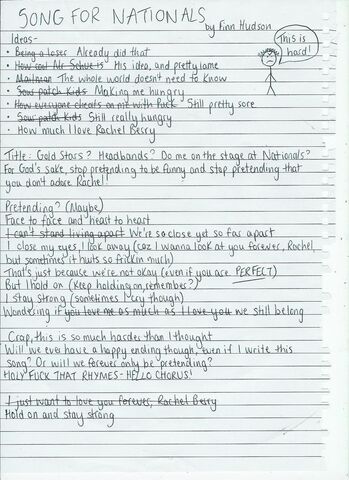 SONG FOR NATIONALS
by Finn Hudson
This is hard!
Ideas-
• Being a loser Already did that
• How cool Mr Schue is His idea, and pretty lame
• Mailman The whole world doesn't need to know
• Sour patch kids Making me hungry
• How everyone cheats on me with Puck Still pretty sore
• Sour patch kids Still really hungry
• How much I love Rachel Berry
Title: Gold Stars? Headbands? Do me on the stage at Nationals?
For God's sake, stop pretending to be funny and stop pretending that
you don't adore Rachel!
Pretending? (Maybe)
Face to face and heart to heart
I can't stand living apart We're so close yet so far apart
I close my eyes, I look away (coz I wanna look at you forever, Rachel,
but sometimes it hurts so frickin much)
That's just because we're not okay (even if you are PERFECT)
But I hold on (Keep holding on, remember?)
I stay strong (sometimes I cry though)
Wondering if you love me as much as I love you we still belong
Crap, this is so much harder than I thought
Will we ever have a happy ending though, even if I write this
song? Or will we forever only be pretending?
HOLY FUCK THAT RHYMES - HELLO CHORUS!
I just want to love you forever, Rachel Berry
Hold on and stay strong